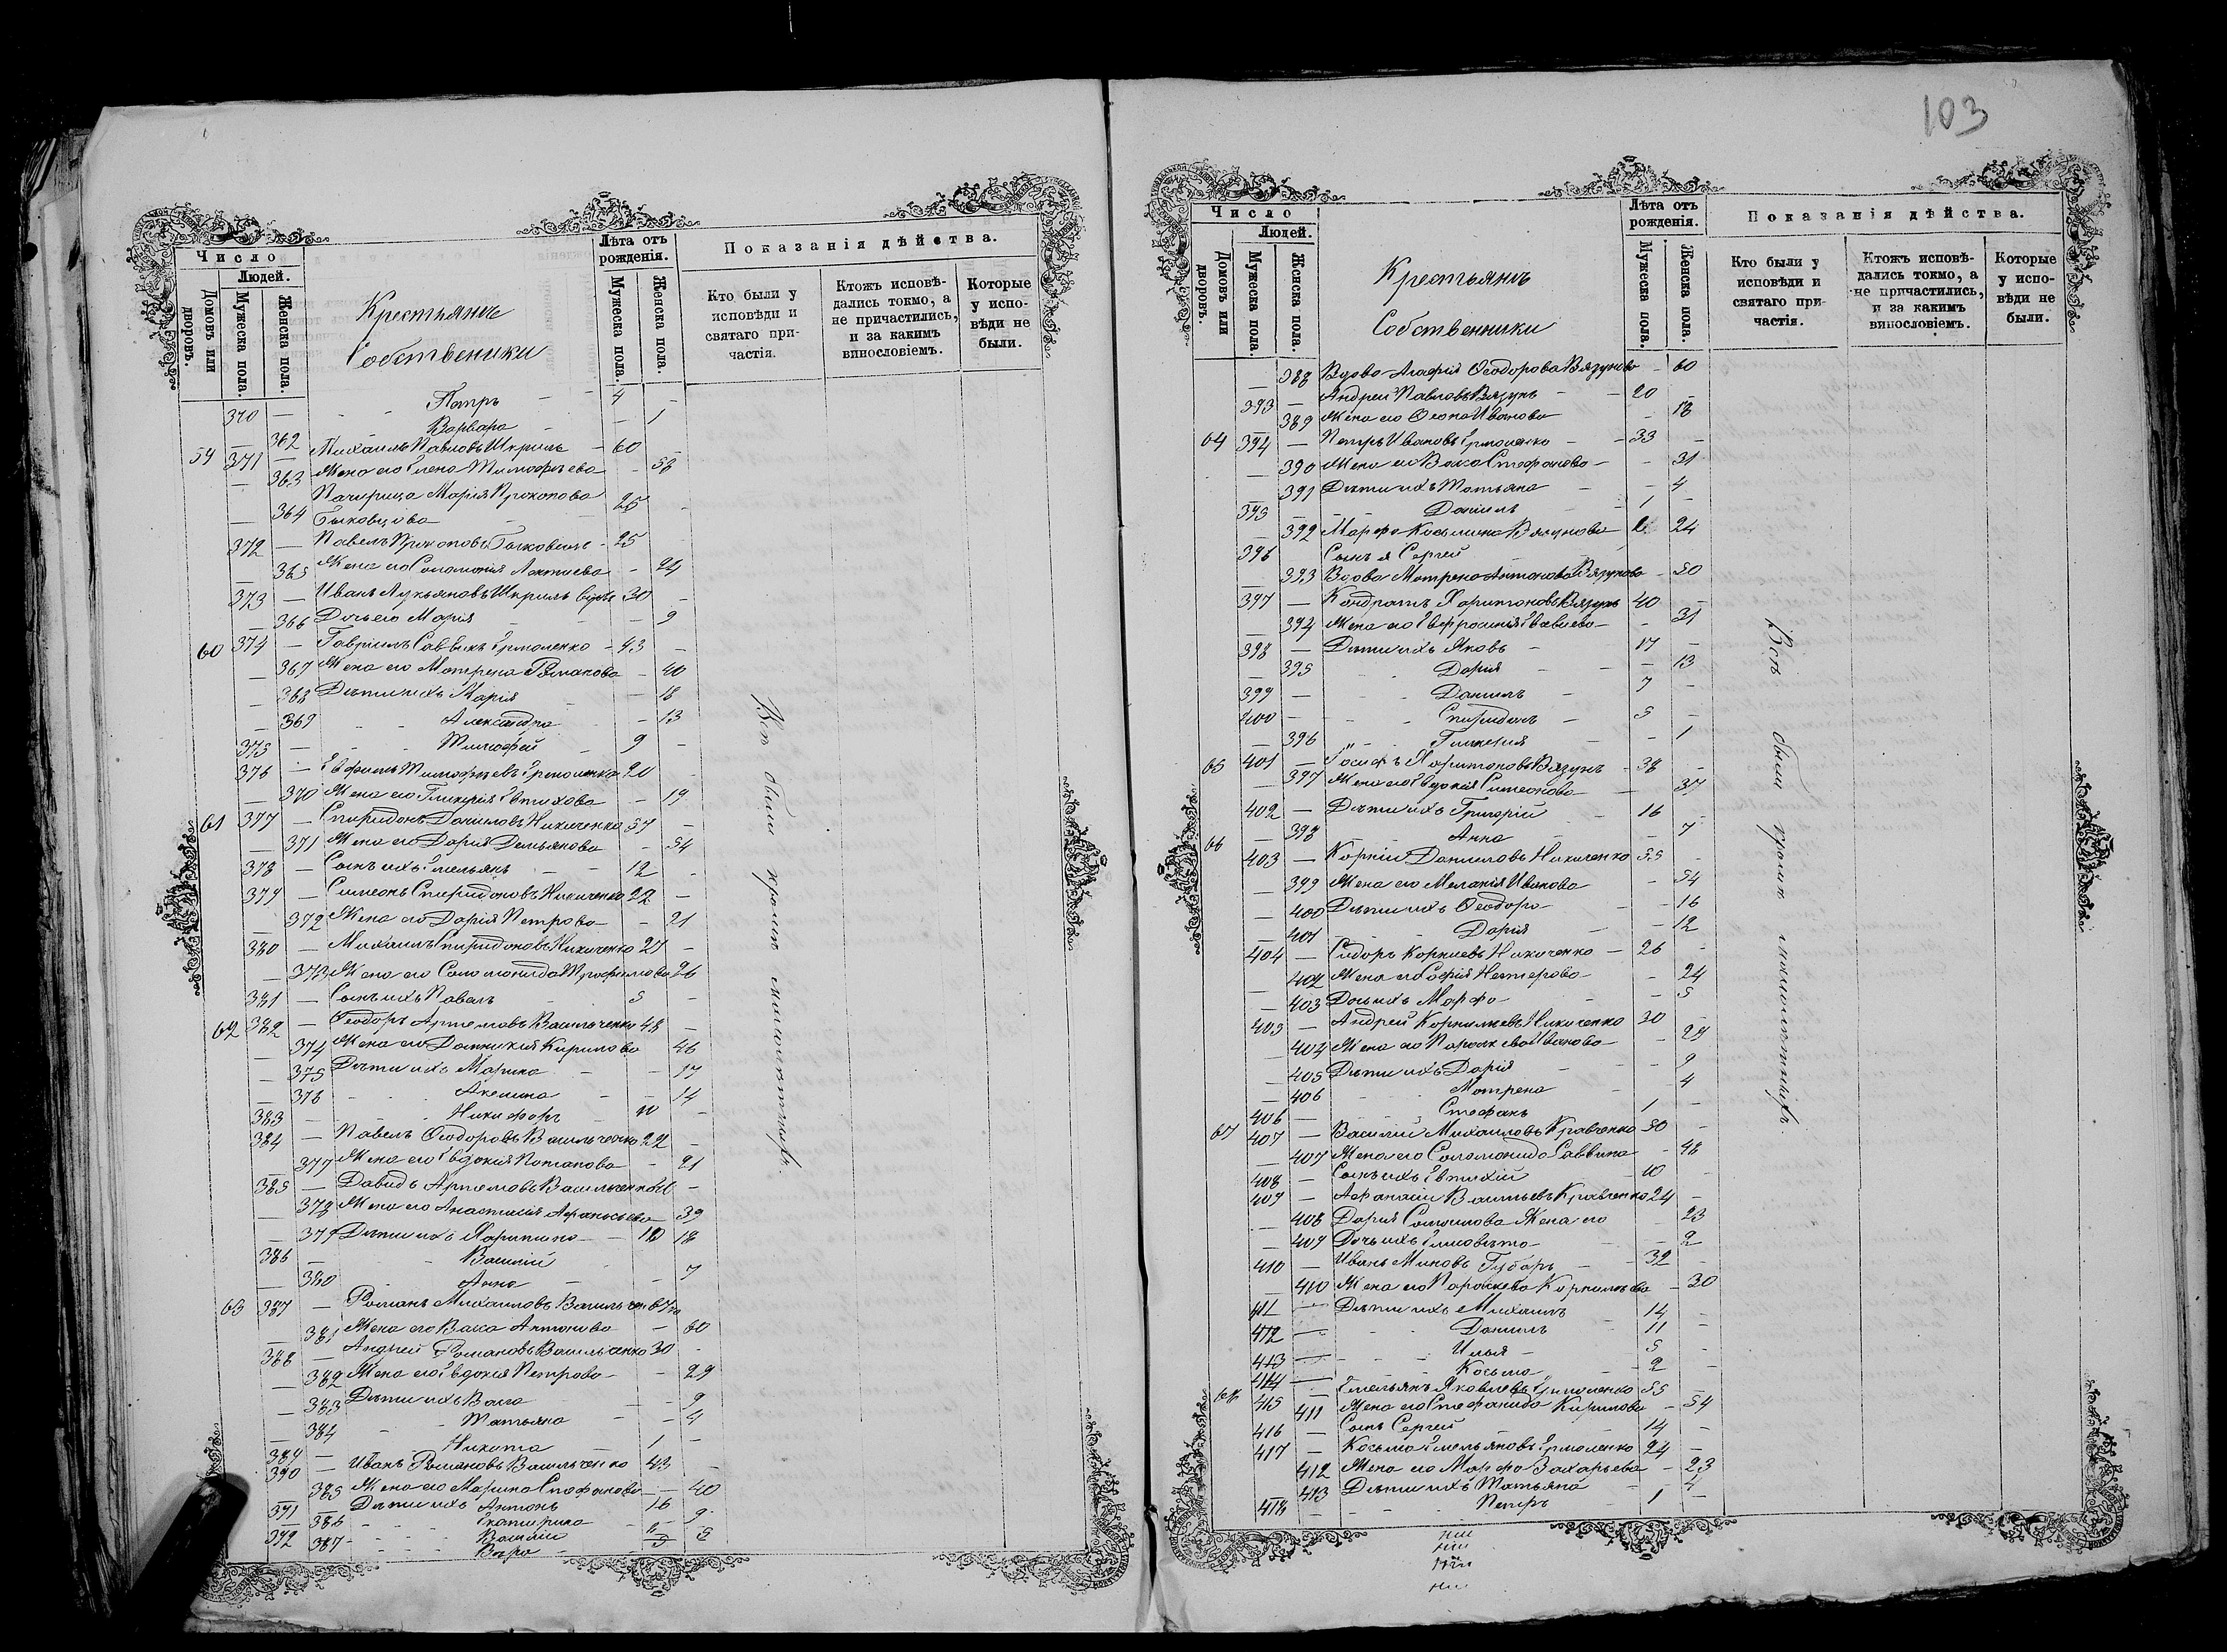 103
Число
Людей.
Домовъ или дворовъ.
Мужеска пола.
Женска пола.
Крестьяне
Собственники
Лѣта отъ рожденія.
Мужеска пола.
Женска пола.
Показанія дѣйства.
Кто были у исповѣди и святаго при-частія.
Ктожъ исповѣ-дались токмо, а не причастились, и за какимъ винословіемъ.
Которые у испо-вѣди не были.
370 — Петръ — 4 —
— 362 Варвара — 1
59 371 — Михаилъ Павловъ Шкриль — 60
— 363 Жена его Елена Тимофѣева — 58
Пачерица Марія Прокопова
— 364 Быковцова 26 -
372 — Павелъ Прокоповъ Быковецъ - 25
— 365 Жена его Соломонія — 24
373 — Иванъ Лукьяновъ Шкриль 30 -
— 366 Дочь его Марія — 9
60 374 — Гавріилъ Саввинъ Ермоленко - 43 —
— 367 Жена его Матрена Романова — 40
— 368 Дѣти ихъ Марія — 18
— 369 Александра - 13
375 — Тимофей 9 -
376 — Евфимъ Тимофѣевъ Ермоленко 20
— 370 Жена его Гликерія Евтихова — 19
61 377 — Спиридонъ Даниловъ Никиченко 57 —
— 371 Жена его Дарія Демьянова - 54
378 — Сынъ ихъ Емельянъ — 12 -
379 — Симеонъ Спиридоновъ Никиченко 22 —
— 372 Жена его Дарія Петрова — 21
380 — Михаилъ Спиридоновъ Никиченко 27 —
— 373 Жена его Соломонида Трофимова 26
381 — Сынъ ихъ Павелъ 5 —
62 382 — Ѳеодоръ Артемовъ Васильченко 48 —
— 374 Жена его Домникія Кирилова 46
— 375 Дѣти ихъ Марина — 17
— 376 Акелина — 14
383 — Никифоръ 10 -
384 — Павелъ Ѳеодоровъ Васильченко 22 -
377 Жена его Евдокія Потапова — 21
385 — Давидъ Артемовъ Васильченко —
— 378 Жена его Анастасія Афанасьева 39
— 379 Дѣти ихъ Харитина — 18
386 — Василій
— 380 Анна — 7
63 387 — Романъ Михаиловъ Васильченко
— 381 Жена его Васса Антонова — 60
388 — Андрей Романовъ Васильченко 30 -
— 382 Жена его Евдокія Петрова — 29
— 383 Дѣти ихъ Васса — 9
— 384 Татьяна — 4
389 — Никита 1 —
390 — Иванъ Романовъ Васильченко 43
— 385 Жена его Марина Стефанова — 40
391 — Дѣти ихъ Антонъ 16
— 386 Екатерина 9
392 — Василій
387 Вѣра
Всѣ были кромѣ малолѣтнихъ.
Число
Людей.
Домовъ или дворовъ.
Мужеска пола.
Женска пола.
Крестьянъ
Собственники
Лѣта отъ рожденія.
Мужеска пола.
Женска пола.
Показанія дѣйства.
Кто были у исповѣди и святаго при-частія.
Ктожъ исповѣ-дались токмо, а не причастились, и за какимъ винословіемъ.
Которые у испо-вѣди не были.
— 388 Вдова Агафія Ѳеодорова Вязунова - 60
393 — Андрей Павловъ Вязунъ - 20 —
— 389 Жена его Ѳеона Иванова - 18
64 394 — Петръ Ивановъ Ермоленко — 33 —
— 390 Жена его Васса Стефанова — 31
— 391 Дѣти ихъ Татьяна — 4
395 — Даніилъ 1 —
— 392 Марфа Косьмина Вязунова 24
396 Сынъ я Сергей
— 393 Вдова Матрена Антонова Вязунова - 50
397 — Кондратъ Харитоновъ Вязунъ 40 —
— 394 Жена его Евфросинія — 31
398 — Дѣти ихъ Яковъ — 17 —
— 395 Дарія — 13
399 — Даниилъ — 7 -
400 — Спиридонъ — 5 —
— 396 Гликерія — 1
65 401 — Іосифъ Харитоновъ Вязунъ - 38 —
— 397 Жена его Евдокія Симеонова — 37
402 — Дѣти ихъ Григорій - 16 -
— 398 Анна — 7
66 403 — Корнилій Даниловъ Никиченко 55 -
— 399 Жена его Меланія Иванова - 54
— 400 Дѣти ихъ Ѳеодора — 16
— 401 Дарія — 12
404 — Сидоръ Корниевъ Никиченко — 26 -
— 402 Жена его Софія Нестерова — 24
— 403 Дочь ихъ Марфа — 5
405 — Андрей Корнилиевъ Никиченко 30 -
— 404 Жена его Параскева Иванова — 29
— 405 Дѣти ихъ Дарія — 9
— 406 Матрена 4
406 — Стефанъ 1 —
67 407 — Василій Михаиловъ Кравченко 50 -
— 407 Жена его Соломонида Саввина - 48
408 — Сынъ ихъ Евтихій - 10 -
409 — Афанасій Васильевъ Кравченко 24 —
— 408 Дарія Самоилова Жена его 23
— 409 Дочь ихъ Елисавета — 2
410 — Иванъ Миновъ Губарь — 32 -
— 410 Жена его Параскева Корнилиева — 30
411 — Дѣти ихъ Михаилъ 14 -
412 — Даниилъ 11 -
413 — Илья — 5 -
414 — Косьма — 2 -
68 415 — Емельянъ Яковлевъ Ермоленко 55
411 Жена его Стефанида Кирилова - 54
416 — Сынъ Сергей — 14 -
417 — Косьма Емельяновъ Ермоленко 24 —
412 Жена его Марфа Захарьева - 23
— 413 Дѣти ихъ Татьяна - 4
418 — Петръ — 1 —
Всѣ были кромѣ малолѣтнихъ.